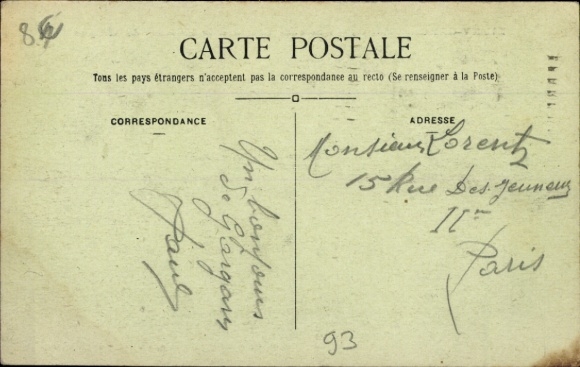 84
CARTE POSTALE
Tous les pays étrangers n'acceptent pas la correspondance au recto (Se renseigner à la Poste)
CORRESPONDANCE
Un bonjour
de Gargan
Paul
ADRESSE
Monsieur Lorentz
15 Rue Des Jeuneurs
II
Paris
93